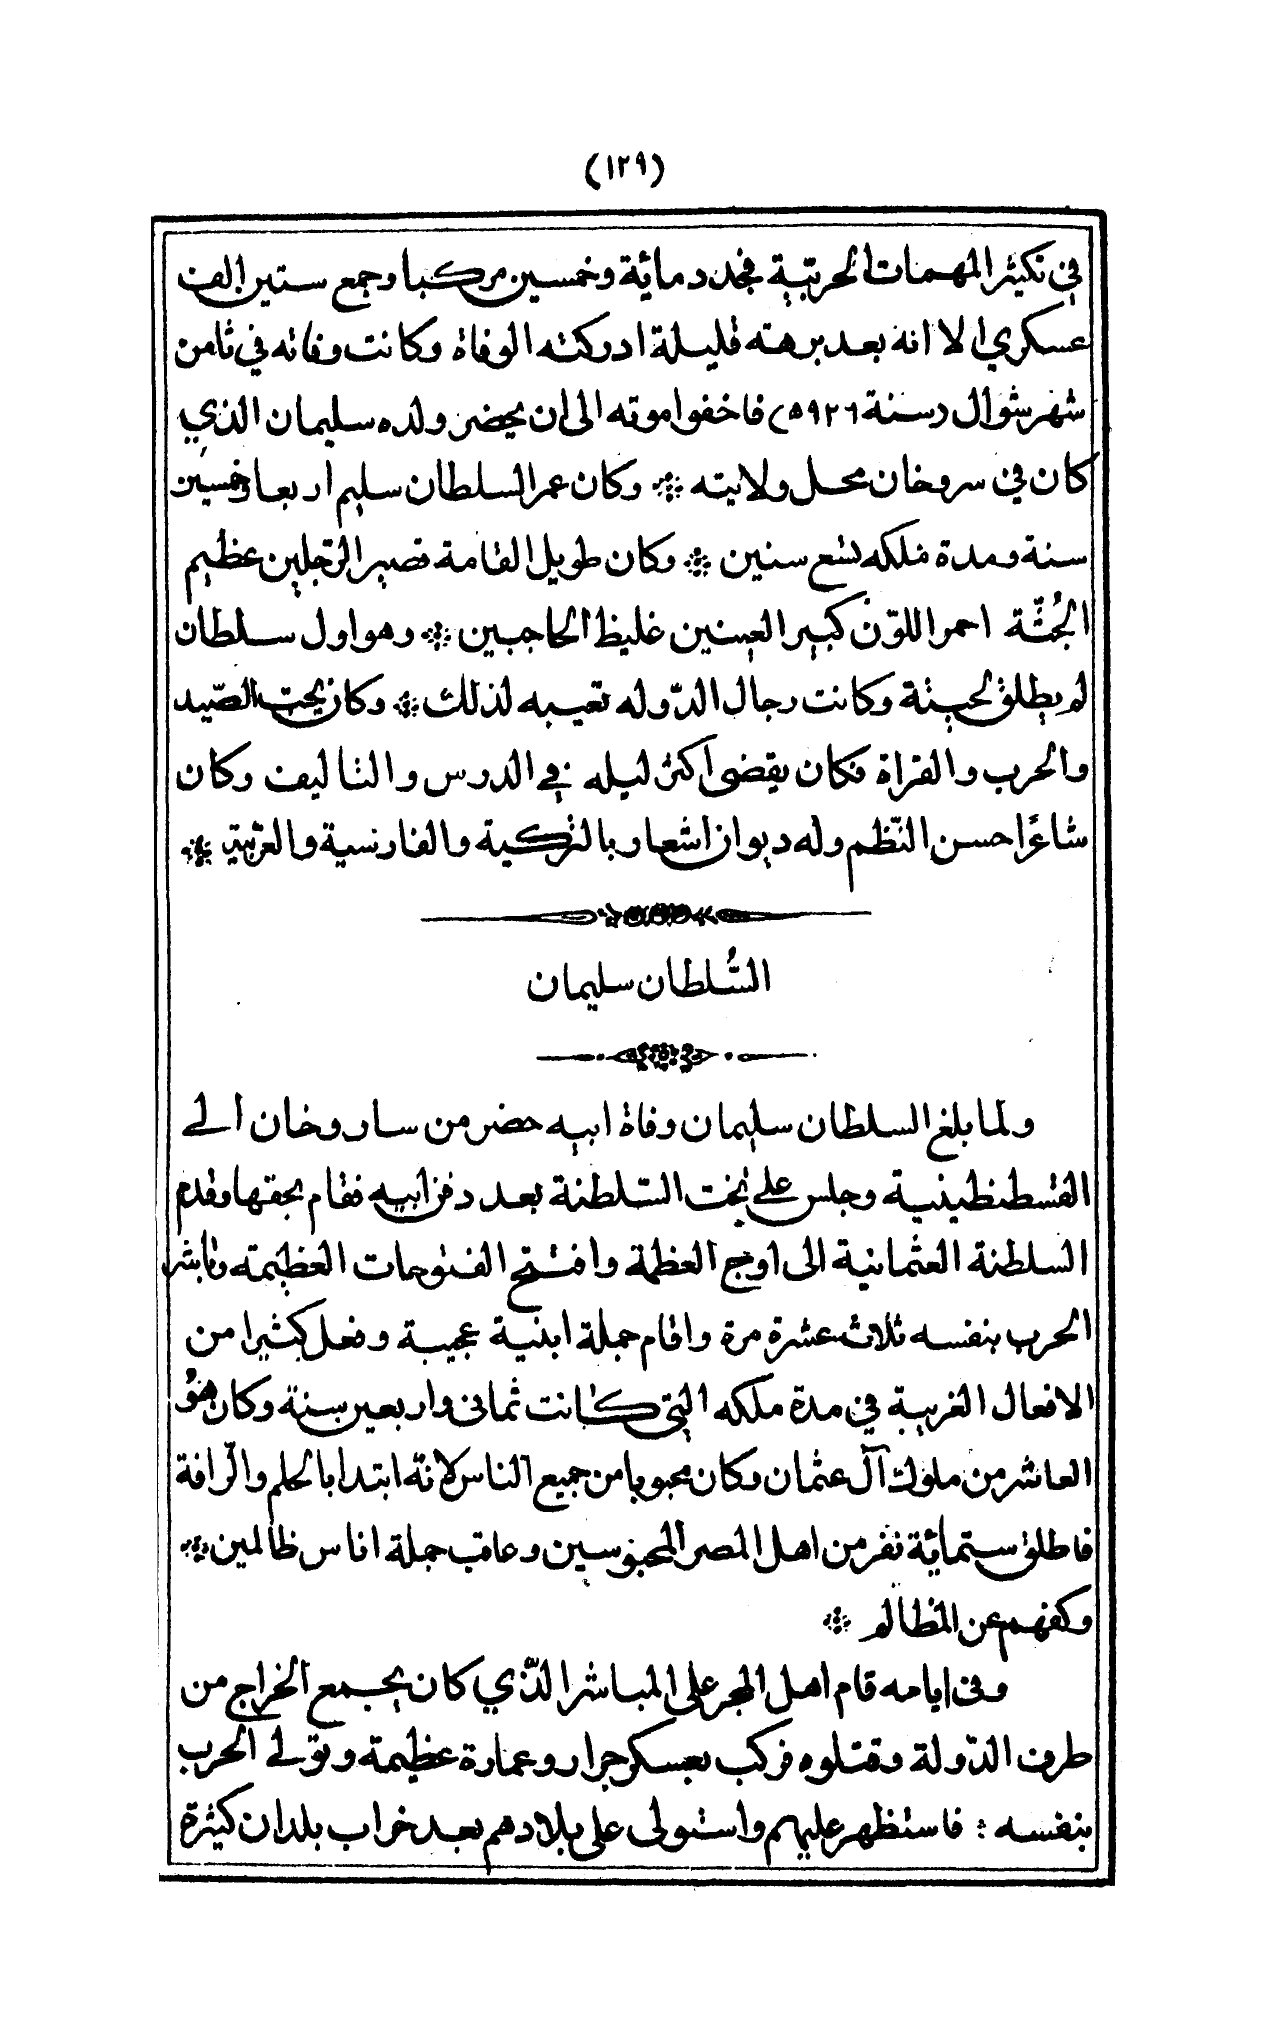 (١٢٩)
في تكثير المهمات الحربية فجدد ماية وخمسين مركبا وجمع ستين الف
عسكري الا انه بعد برهته قليلة ادركته الوفاة وكانت وفاته في ثامن
شهر شوال (سنة ٩٢٦ه) فاخفوا موته الى ان يحضر ولده سليمان الذي
كان في سروخان محل ولايته ※ وكان عمر السلطان سليم اربعا وخمسين
سنة ومدة ملكه تسع سنين ※ وكان طويل القامة قصير الرّجلين عظيم
الجُثّة احمر اللوّن كبير العينين غليظ الحاجبين ※ وهو اول سلطان
لم يطلق لحيته وكانت رجال الدّوله تعيبه لذلك ※ وكان يحبّ الصّيد
والحرب والقراة فكان يقضى اكثر ليله في الدرس والتاليف وكان
شاعرًا حسن النّظم وله ديوان اشعار بالتركية والفارسية والعربية ※
السُّلطان سليمان
ولما بلغ السلطان سليمان وفاة ابيه حضر من ساروخان الى
القسطنطينية وجلس على تخت السّلطنة بعد دفن ابيه فقام بحقها وقدم
السلطنة العثمانية الى اوج العظمة وافتتح الفتوحات العظيمة وباشر
الحرب بنفسه ثلاث عشرة مرة واقام جملة ابنية عجيبة وفعل كثيرا من
الافعال الغريبة في مدة ملكه التي كانت ثمانى واربعين سنة وكان هو
العاشر من ملوك آل عثمان وكان محبوبا من جميع الناس لانّه ابتدا بالحلم والرّافة
فاطلق ستماية نفر من اهل المصر المحبوسين وعاقب جملة اناس ظالمين ※
وكفهم عن المظالم ※
وفى ايامه قام اهل المجر على المباشر الذّي كان يجمع الخراج من
طرف الدّولة وقتلوه فركب بعسكر جرار وعمارة عظيمة وتولى الحرب
بنفسه : فاستظهر عليهم واستولى على بلادهم بعد خراب بلدان كثيرة